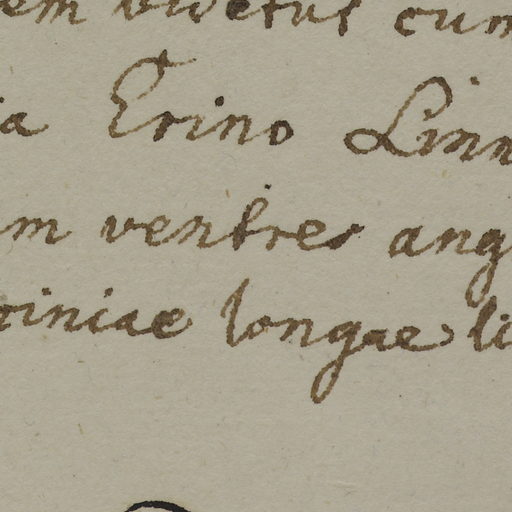 em videtur cum
ia Erino Linn
m ventres ang
oiniae longae li